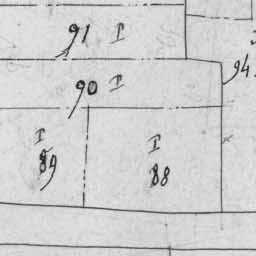 91 I
90 I
94
I
89
I
88